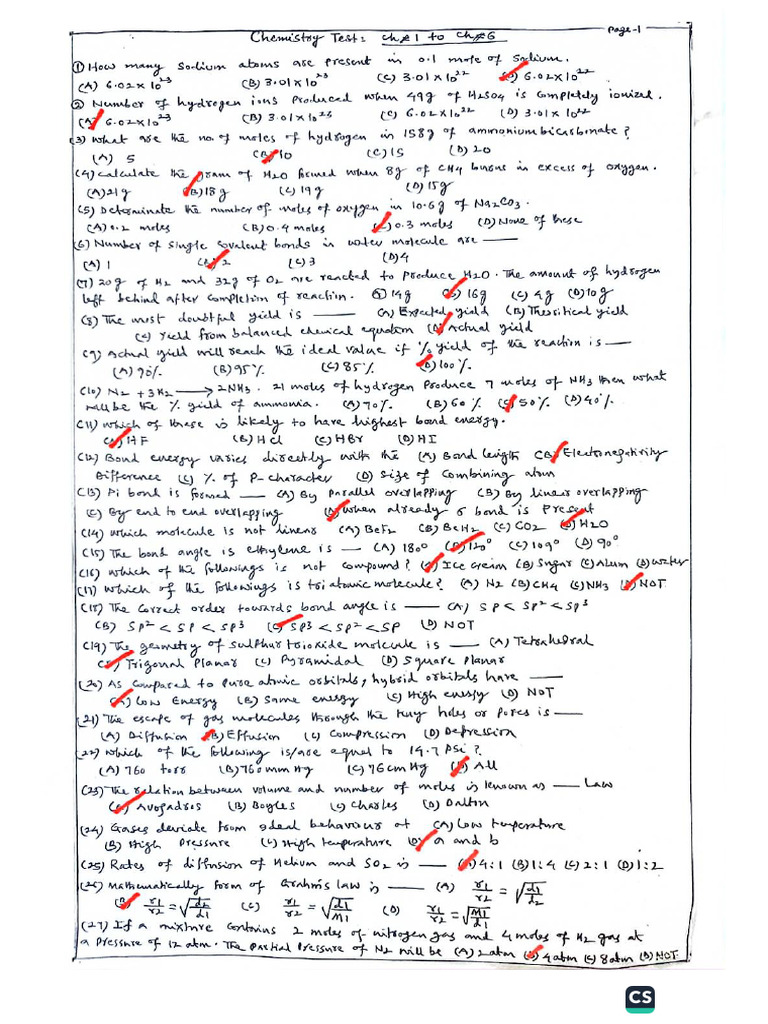 Chemistry Test: ch#1 to Ch#6 Page-1
(1) How many Sodium atoms are present in 0.1 mole of Sodium.
(A) 6.02×10²³ (B) 3.01×10²³ (C) 3.01×10²² (D) 6.02×10²²
(2) Number of hydrogen ions Produced when 49g of H2SO4 is Completely ionized.
(A) 6.02×10²³ (B) 3.01×10²³ (C) 6.02×10²² (D) 3.01×10²²
(3) What are the no. of moles of hydrogen in 158g of ammonium bicarbonate?
(A) 5 (B) 10 (C) 15 (D) 20
(4) Calculate the gram of H2O formed when 8g of CH4 burns in excess of oxygen.
(A) 21g (B) 18g (C) 19g (D) 15g
(5) Determinate the number of moles of oxygen in 10.6g of Na2CO3.
(A) 0.2 moles (B) 0.4 moles (C) 0.3 moles (D) None of these
(6) Number of Single Covalent bonds in water molecule are —
(A) 1 (B) 2 (C) 3 (D) 4
(7) 20g of H2 and 32g of O2 are reacted to produce H2O. The amount of hydrogen
left behind after completion of reaction. (A) 14g (B) 16g (C) 4g (D) 10g
(8) The most doubtful yield is — (A) Expected yield (B) Theoritical yield
(C) Yield from balanced chemical equation (D) Actual yield
(9) Actual yield will reach the ideal value if % yield of the reaction is —
(A) 90% (B) 95% (C) 85% (D) 100%
(10) N2 + 3H2 → 2NH3. 21 moles of hydrogen Produce 7 moles of NH3 then what
will be the % yield of ammonia. (A) 70% (B) 60% (C) 50% (D) 40%.
(11) Which of these is likely to have highest bond energy.
(A) HF (B) HCl (C) HBr (D) HI
(12) Bond energy varies directly with the (A) Bond length (B) Electronegativity
Difference (C) % of P-character (D) Size of Combining atom
(13) Pi bond is formed — (A) By Parallel overlapping (B) By linear overlapping
(C) By end to end overlapping (D) When already σ bond is Present
(14) Which molecule is not linear (A) BeF2 (B) BeH2 (C) CO2 (D) H2O
(15) The bond angle is ethylene is — (A) 180° (B) 120° (C) 109° (D) 90°
(16) Which of the followings is not compound? (A) Ice cream (B) Sugar (C) Alum (D) Water
(17) Which of the followings is triatomic molecule? (A) N2 (B) CH4 (C) NH3 (D) NOT
(18) The Correct order towards bond angle is — (A) SP < SP² < SP³
(B) SP² < SP < SP³ (C) SP³ < SP² < SP (D) NOT
(19) The geometry of sulphur trioxide molecule is — (A) Tetrahedral
(B) Trigonal Planar (C) Pyramidal (D) Square planar
(20) As Compared to Pure atomic orbitals, hybrid orbitals have —
(A) Low Energy (B) Same energy (C) High energy (D) NOT
(21) The escape of gas molecules through the tiny holes or Pores is —
(A) Diffusion (B) Effusion (C) Compression (D) Depression
(22) Which of the following is/are equal to 14.7 Psi?
(A) 760 torr (B) 760mmHg (C) 76cmHg (D) All
(23) The relation between volume and number of moles is known as — Law
(A) Avogadros (B) Boyles (C) Charles (D) Dalton
(24) Gases deviate from ideal behaviour at (A) Low temperature
(B) High Pressure (C) High temperature (D) a and b
(25) Rates of diffusion of Helium and SO2 is — (A) 4:1 (B) 1:4 (C) 2:1 (D) 1:2
(26) Mathematically form of Grahm's law is — (A) r1/r2 = √d1/d2
(B) r1/r2 = √d2/d1 (C) r1/r2 = √d1/M1 (D) r1/r2 = √M1/d1
(27) If a mixture contains 2 moles of nitrogen gas and 4 moles of H2 gas at
a Pressure of 12 atm. The Partial Pressure of N2 will be (A) 2 atm (B) 4 atm (C) 8 atm (D) NOT
CS